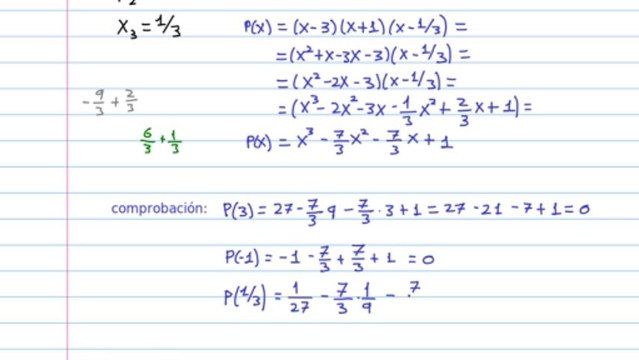 x₃ = 1/3
P(x) = (x-3)(x+1)(x-1/3) =
= (x²+x-3x-3)(x-1/3) =
= (x²-2x-3)(x-1/3) =
-9/3 + 2/3
= (x³-2x²-3x-1/3x²+2/3x+1) =
6/3 + 1/3
P(x) = x³ - 7/3x² - 7/3x + 1
comprobación: P(3) = 27 - 7/3·9 - 7/3·3 + 1 = 27 - 21 - 7 + 1 = 0
P(-1) = -1 - 7/3 + 7/3 + 1 = 0
P(1/3) = 1/27 - 7/3·1/9 - 7